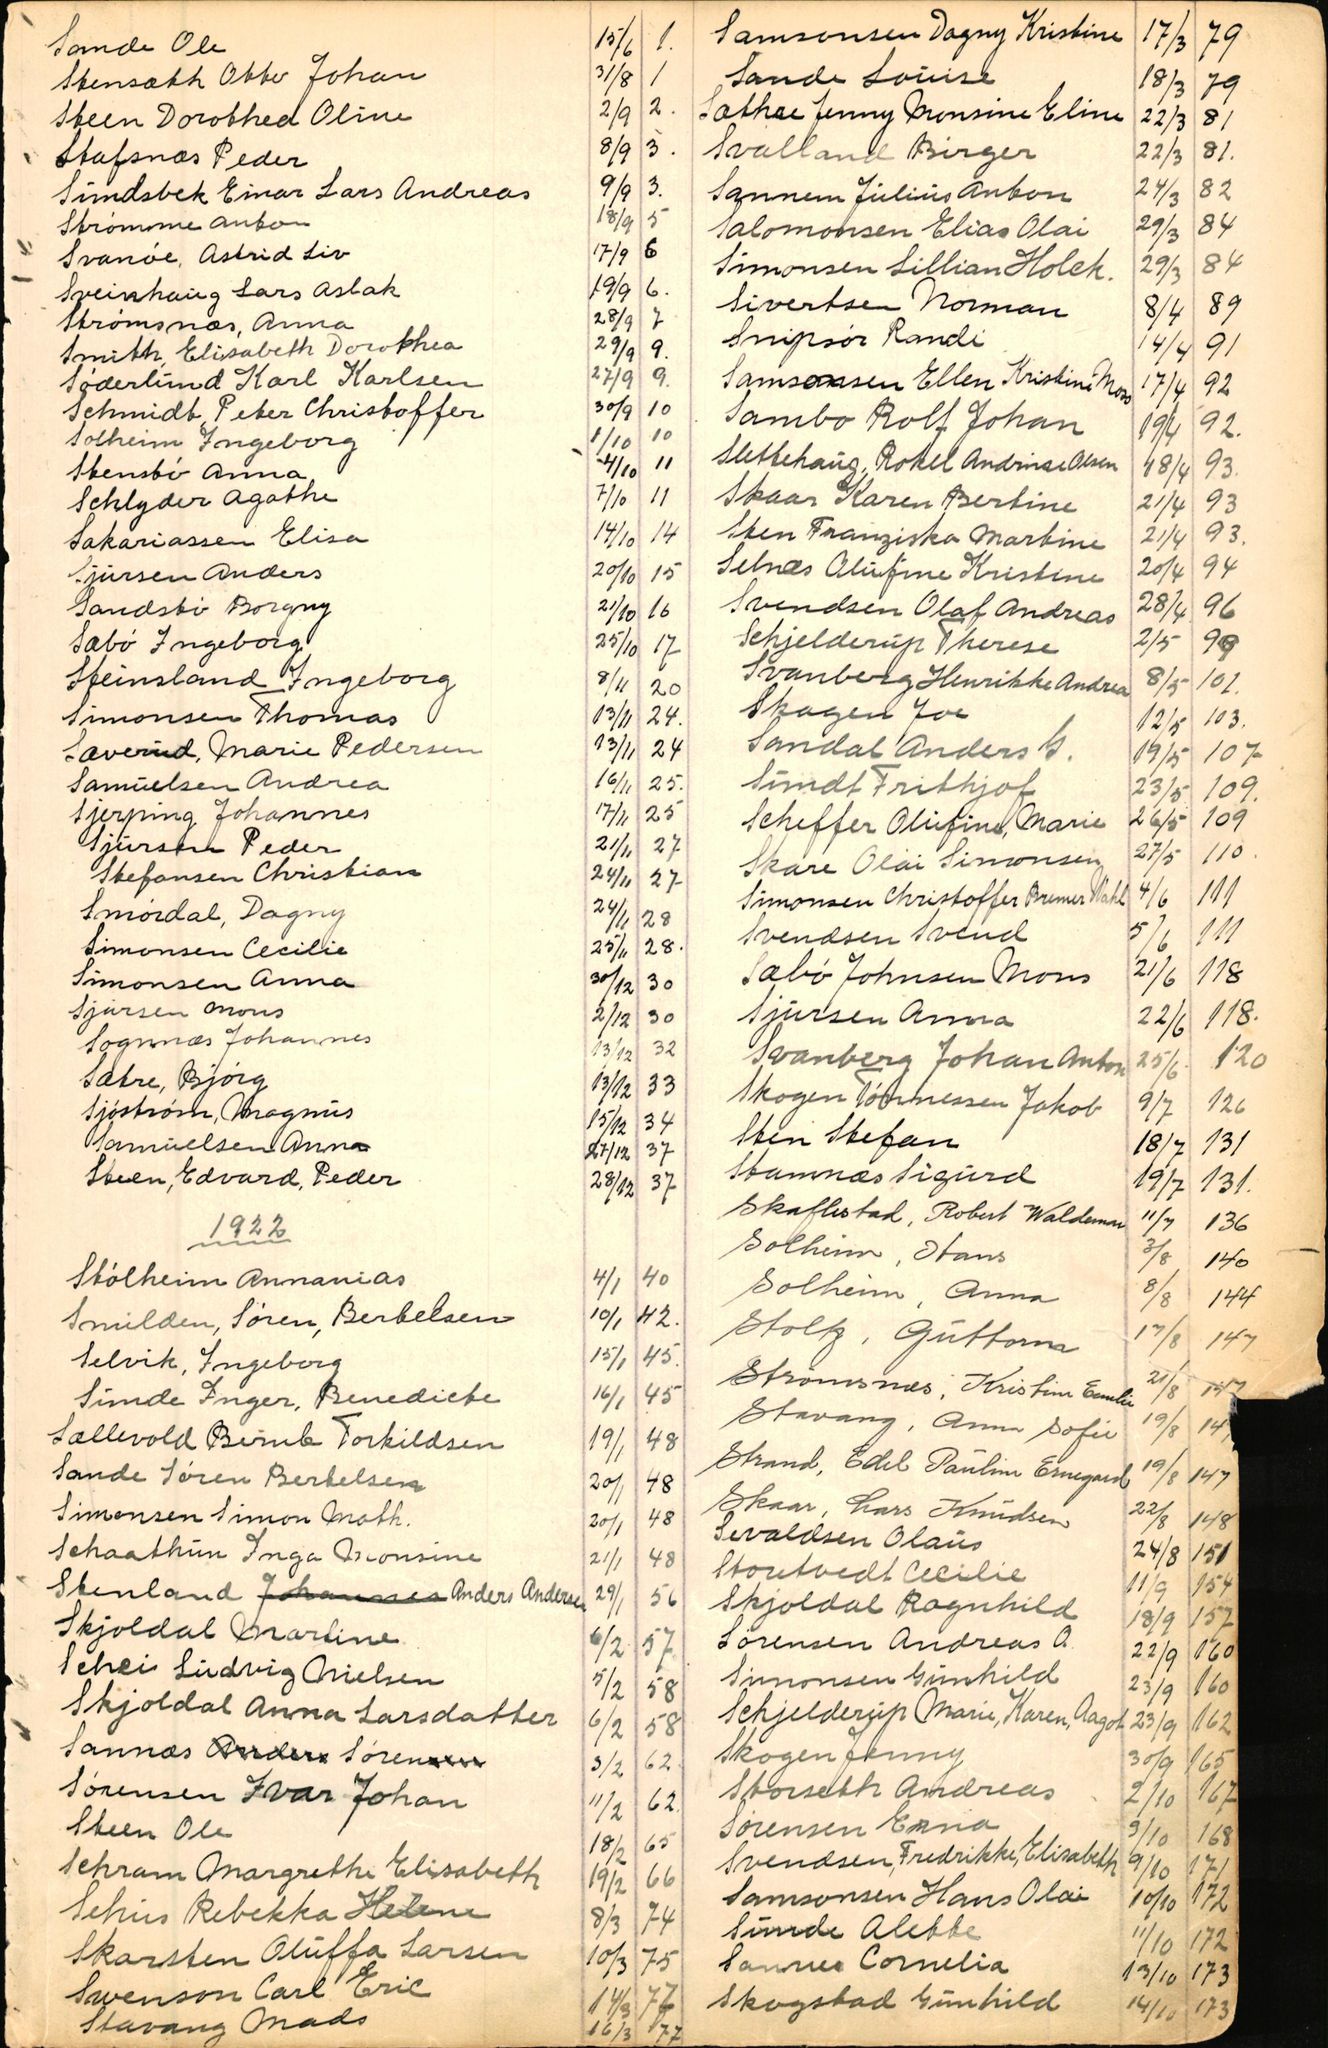 Sande Ole 15/6 1.
Stensæth Otto Johan 31/8 1
Steen Dorothea Oline 2/9 2.
Stafsnæs Peder 8/9 3.
Sundsbek Einar Lars Andreas 9/9 3.
Strømme Anton 18/9 5
Svanøe, Astrid Liv 17/9 6
Sveinhaug Lars Aslak 19/9 6.
Strømsnæs, Anna 28/9 7
Smith, Elisabeth Dorothea 29/9 9.
Söderlund Karl Karlsen 27/9 9.
Schmidt, Peter Christoffer 30/9 10
Solheim Ingeborg 1/10 10
Stensbö Anna 4/10 11
Schlyder Agathe 7/10 11
Sakariassen Elisa 14/10 14
Sjursen Anders 20/10 15
Sandsbö Borgny 21/10 16
Sæbö Ingeborg 25/10 17
Steinsland Ingeborg 8/11 20
Simonsen Thomas 13/11 24.
Sæverud, Marie Pedersen 13/11 24
Samuelsen Andrea 16/11 25.
Sjerping Johannes 17/11 25
Sjursen Peder 21/11 27
Stefansen Christian 24/11 27
Smördal, Dagny 24/11 28
Simonsen Cecilie 25/11 28.
Simonsen Anna 30/12 30
Sjursen Mons 2/12 30
Sognnæs Johannes 13/12 32
Sætre, Bjørg 13/12 33
Sjöström, Magnus 15/12 34
Samuelsen Anna 27/12 37
Steen, Edvard, Peder 28/12 37
1922
Stölheim Annanias 4/1 40
Smilden, Sören, Bertelsen 10/1 42.
Selvik, Ingeborg 15/1 45.
Sunde Inger, Benedicte 16/1 45
Sællevold Bernt Torkildsen 19/1 48
Sande Sören Bertelsen 20/1 48
Simonsen Simon Math. 20/1 48
Schaathun Inga Monsine 21/1 48
Stenland Johannes Anders Andersen 29/1 56
Skjoldal Martine 6/2 57
Schei Ludvig Nielsen 5/2 58
Skjoldal Anna Larsdatter 6/2 58
Sannæs Anders Sören 3/2 62
Sörensen Ivar Johan 11/2 62
Steen Ole 18/2 65
Schram Margrethe Elisabeth 19/2 66
Rebekka Helene 8/3 74
Skarsten Oluffa Larsen 10/3 75
Swenson Carl Eric 14/3 77
Stavang Mads 16/3 77
Samsonsen Dagny Kristine 17/3 79
Sande Louise 18/3 79
Sæthre Jenny Monsine Eline 22/3 81
Svalland Birger 22/3 81.
Sannem Julius Anton 24/3 82
Salomonsen Elias Olai 29/3 84
Simonsen Lillian Holck. 29/3 84
Sivertsen Norman 8/4 89
Snipsör Randi 14/4 91
Samsonsen Ellen Kristine Moss 17/4 92
Sambo Rolf Johan 19/4 92.
Slettehaug, Rakel Andrine Olsen 18/4 93.
Skaar Karen Bertine 21/4 93
Sten Franziska Martine 21/4 93.
Selnæs Olufine Kristine 20/4 94
Svendsen Olaf Andreas 28/4 96
Schjelderup Therese 2/5 99
Svanberg Henrikke Andrea 8/5 101.
Skagen Joe 12/5 103.
Sandal Anders G. 19/5 107
Sundt Frithjof 23/5 109.
Scheffer Olufine, Marie 26/5 109
Skare Olai Simonsen 27/5 110.
Simonsen Christoffer Bremer Wahl 4/6 111
Svendsen Svend 5/6 111
Sæbö Johnsen Mons 21/6 118
Sjursen Anna 22/6 118.
Svanberg Johan Anton 25/6 120
Skogen Tönnessen Jakob 9/7 126
Sten Stefan 18/7 131
Stamnæs Sigurd 19/7 131.
Skaflestad, Robert Waldemar 11/7 136
Solheim, Hans 3/8 140
Solheim, Anna 8/8 144
Stoltz, Guttorm 17/8 147
Strömsnæs, Kristine Emilie 21/8 147
Stavang, Anna Sofie 19/8 14
Strand, Edel Pauline Ermegard 19/8 147
Skaar, Lars Knudsen 22/8 148
Sevaldsen Olaus 24/8 151
Stortvedt Cecilie 11/9 154
Skjoldal Ragnhild 18/9 157
Sörensen Andreas A. 22/9 160
Simonsen Gunhild 23/9 160
Schjelderup Marie, Karen, Aagot 23/9 162
Skogen Jenny 30/9 165
Storseth Andreas 2/10 167
Sörensen Erna 3/10 168
Svendsen, Fredrikke, Elisabeth 9/10 171
Samsonsen Hans Olai 10/10 172
Sunde Alette 11/10 172
Cornelia 13/10 173
Skogstad Gunhild 14/10 173